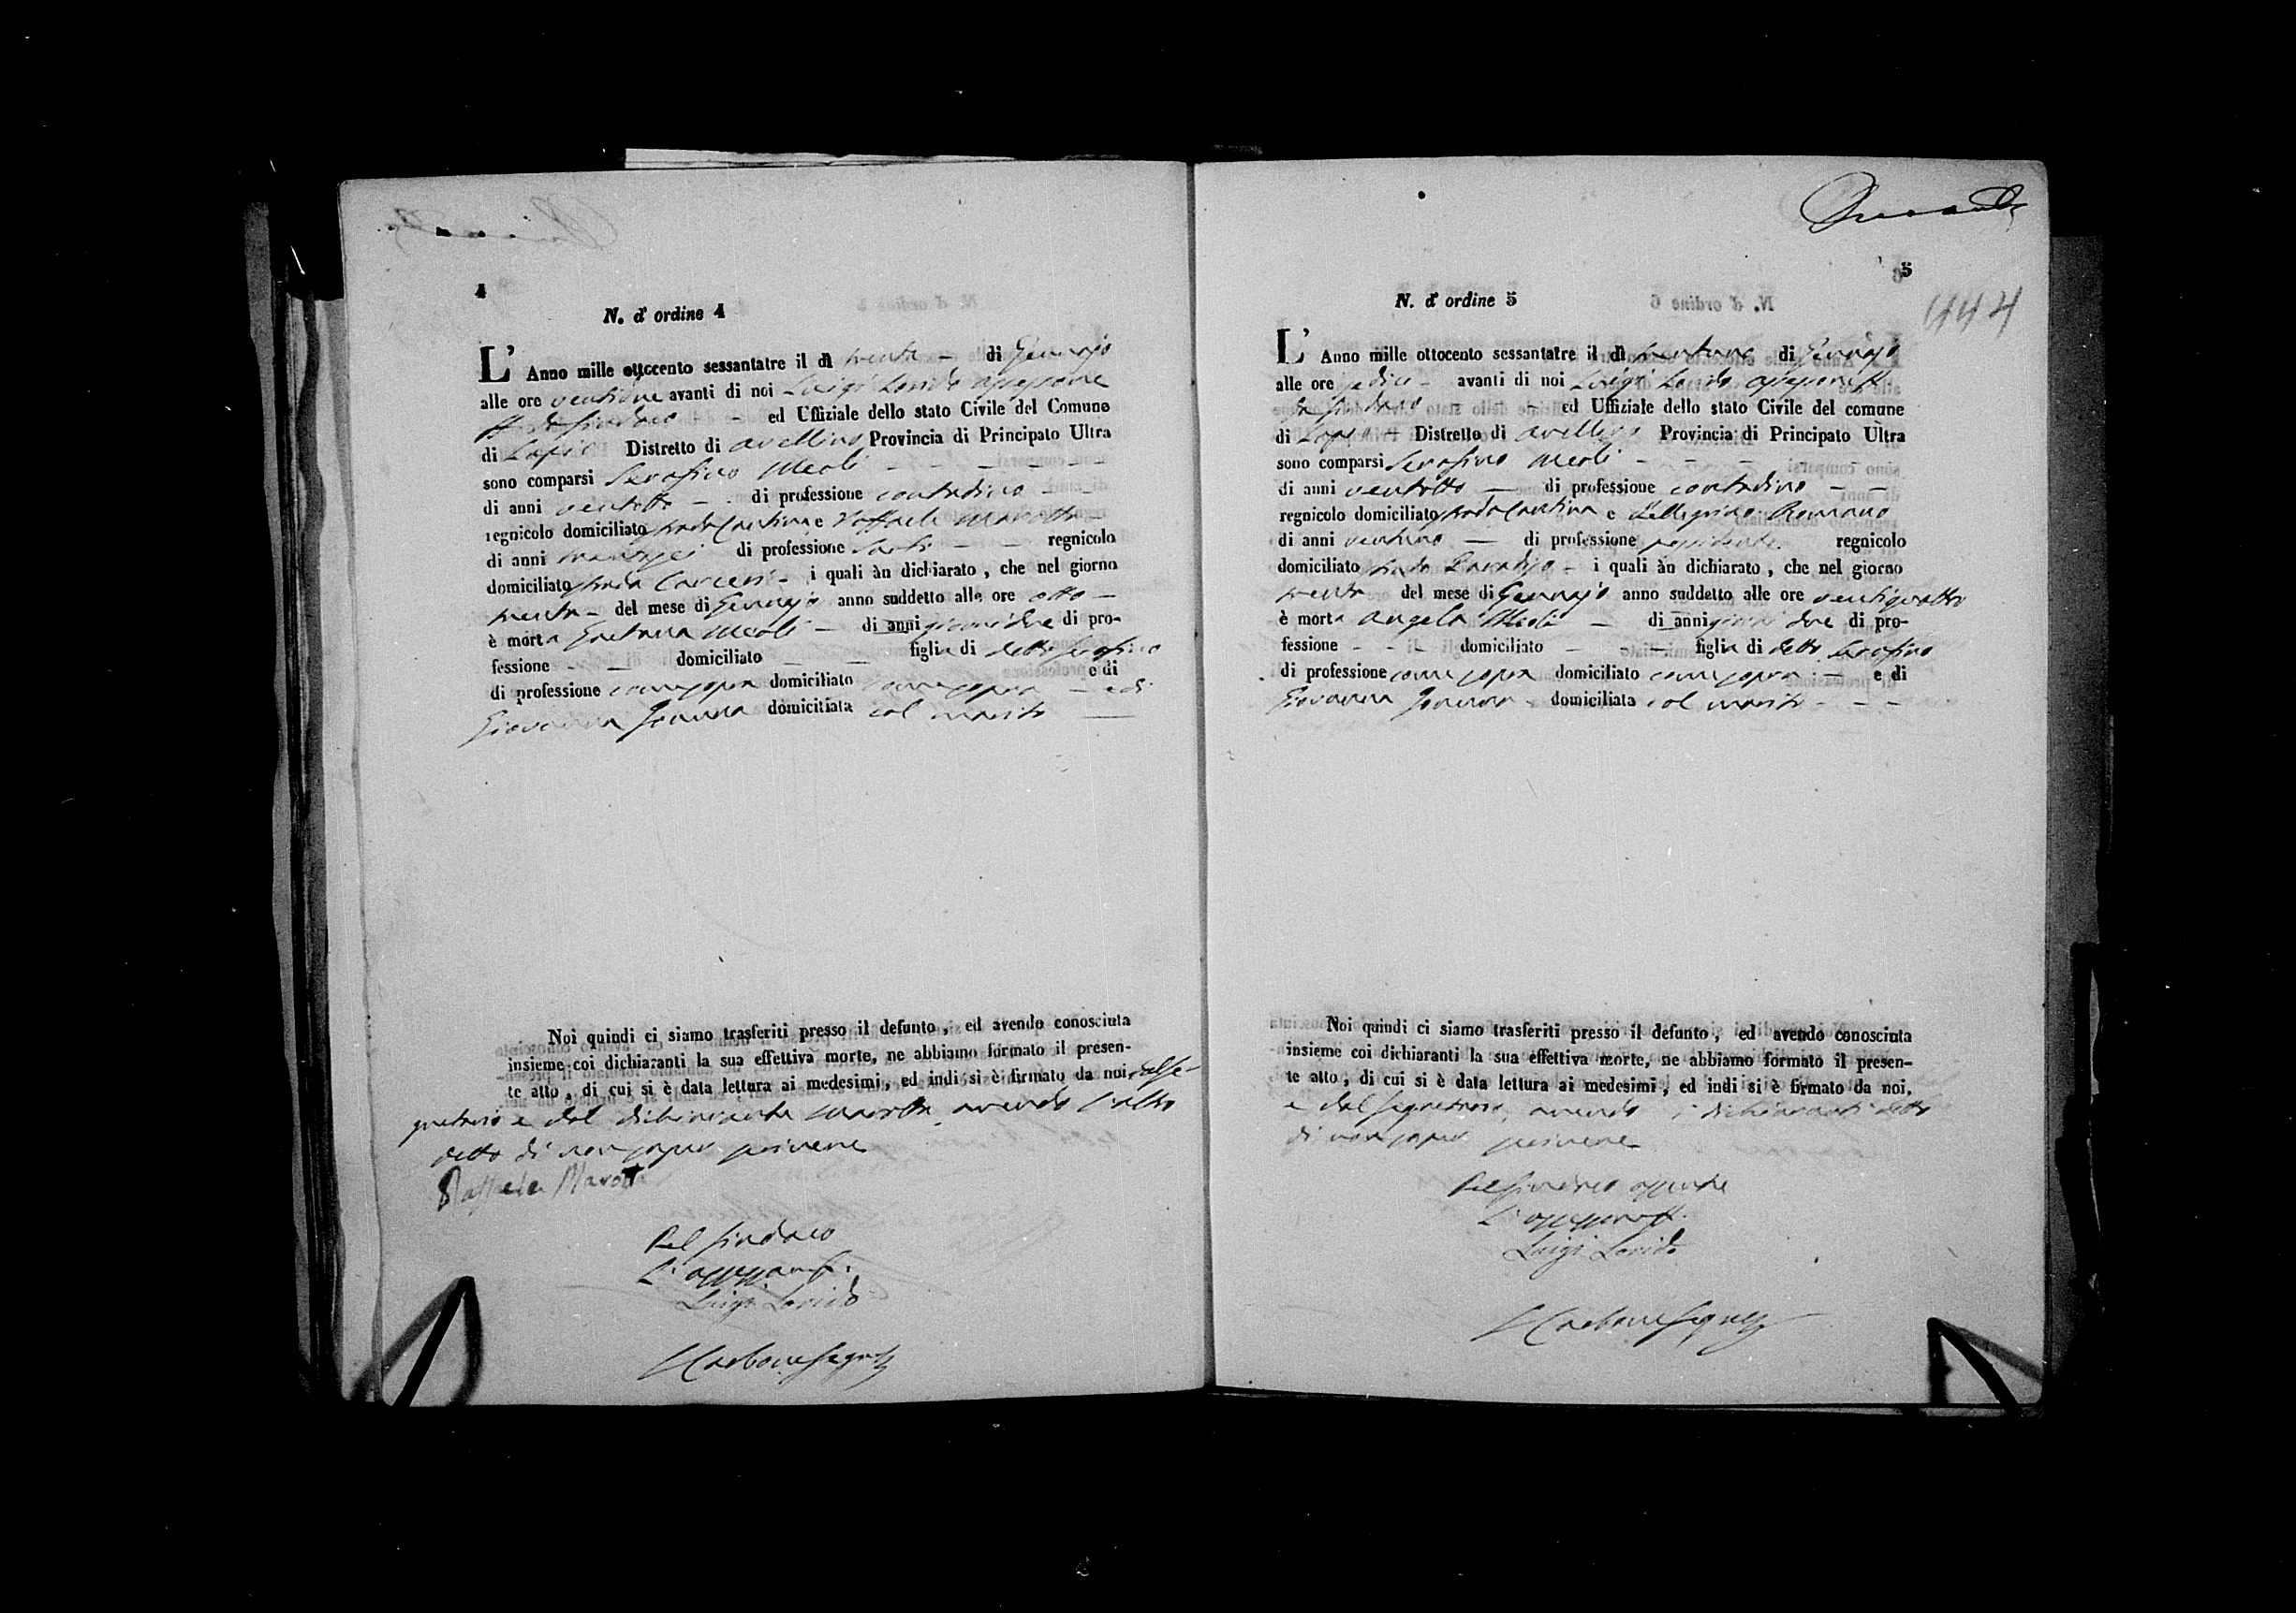 4
N. d' ordine 4
L' Anno mille ottocento sessantatre il dì trenta – di Gennajo
alle ore ventidue avanti di noi – Luigi Lorido assessore
ff. da Sindaco – – ed Uffiziale dello stato Civile del Comune
di Lapio Distretto di Avellino Provincia di Principato Ultra
sono comparsi Serafino Meoli – – – – – –
di anni ventotto – – di professione contadino – –
regnicolo domiciliato strada Cantina e Raffaele Marotta –
di anni di professione Sarto – – regnicolo
domiciliato strada Carceri – i quali àn dichiarato, che nel giorno
trenta – del mese di Gennajo anno suddetto alle ore otto –
è morta Gaetana Meoli – di anni giorni due di pro-
fessione – – domiciliato – – figlia di detto Serafino
di professione come sopra domiciliato come sopra – e di
Giovanna domiciliata col marito –
Noi quindi ci siamo trasferiti presso il defunto, ed avendo conosciuta
insieme coi dichiaranti la sua effettiva morte, ne abbiamo formato il presen-
te atto, di cui si è data lettura ai medesimi, ed indi si è firmato da noi, dal Se-
gretario e dal dichiarante Marotta avendo l'altro
detto di non saper scrivere
Raffaele Marotta
Pel Sindaco
L'assessore ff.
Luigi Lorido
Carbone Segret.
5
N. d' ordine 5
444
L' Anno mille ottocento sessantatre il dì trentuno di Gennajo
alle ore sedici – avanti di noi Luigi Lorido assessore ff
da Sindaco – – ed Uffiziale dello stato Civile del comune
di Lapio – Distretto di Avellino Provincia di Principato Ultra
sono comparsi Serafino Meoli – – – –
di anni ventotto – di professione contadino – –
regnicolo domiciliato strada Cantina e Pellegrino Romano
di anni ventuno – di professione possidente regnicolo
domiciliato strada – i quali àn dichiarato, che nel giorno
trenta del mese di Gennajo anno suddetto alle ore ventiquattro
è morta Angela Meoli – di anni giorni due di pro-
fessione – – – domiciliato – – – figlia di detto Serafino
di professione come sopra domiciliato come sopra – e di
Giovanna domiciliata col marito – – –
Noi quindi ci siamo trasferiti presso il defunto, ed avendo conosciuta
insieme coi dichiaranti la sua effettiva morte, ne abbiamo formato il presen-
te atto, di cui si è data lettura ai medesimi, ed indi si è firmato da noi,
e dal Segretario, avendo i dichiaranti detto
di non saper scrivere
Pel Sindaco assente
L'assessore ff.
Luigi Lorido
Carbone Segret.